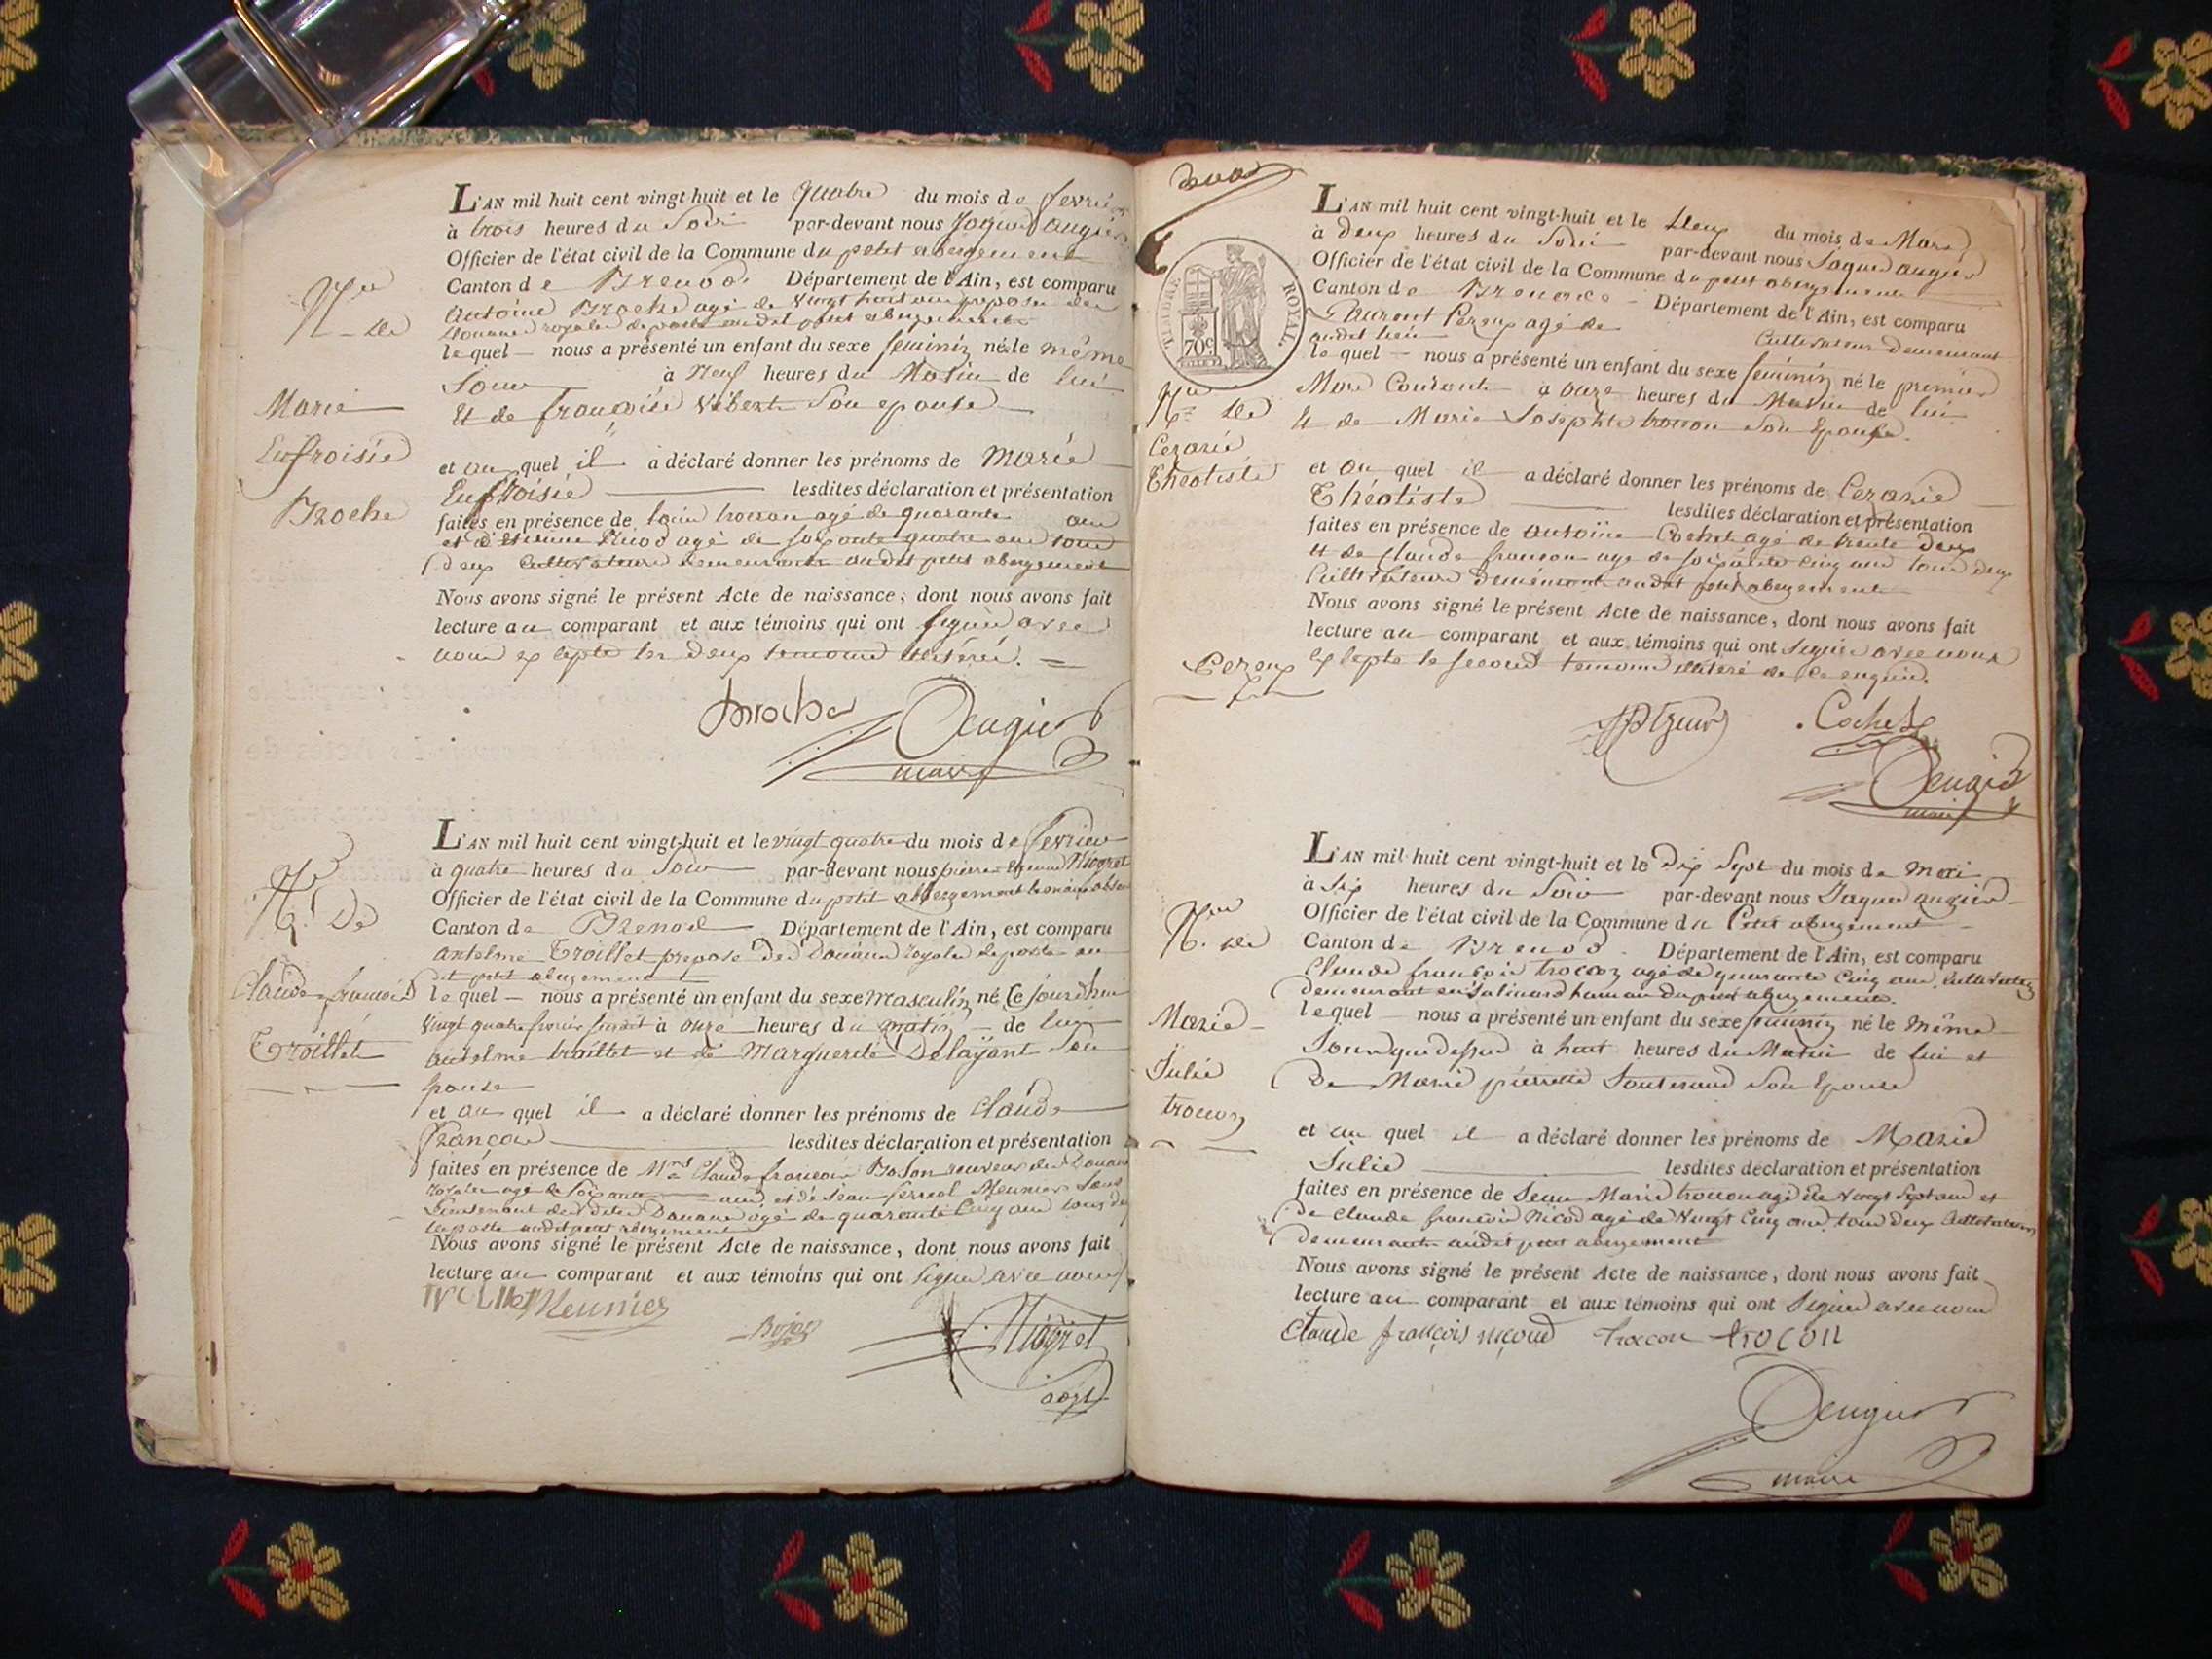 L'AN mil huit cent vingt-huit et le quatre du mois de fevrier
à trois heures du Soir par-devant nous Jaques augier
Officier de l'état civil de la Commune du petit abergement
Canton de Brenod Département de l'Ain, est comparu
antoine Broche agé de Vingt huit ans preposé des
Douanes royales de poste audit petit abergement
Nce
de
lequel nous a présenté un enfant du sexe feminin né le même
Jour à Neuf heures du Matin de lui
Marie
Et de françoise Vibert Son epouse
Eufroisie
et au quel il a déclaré donner les prénoms de Marie
Eufroisie lesdites déclaration et présentation
Broche
faites en présence de louis trocon agé de quarante ans
et d'Etienne Nicod agé de soixante quatre ans tous
deux Cultivateurs demeurants audit petit abergement
Nous avons signé le présent Acte de naissance, dont nous avons fait
lecture au comparant et aux témoins qui ont signé avec
nous excepté les deux temoins illitérés.
broche Augier
maire
L'AN mil huit cent vingt-huit et le vingt quatre du mois de fevrier
à quatre heures du Soir par-devant nous pierre Niogret
Officier de l'état civil de la Commune du petit abergement le maire absent
Nce de
Canton de Brenod Département de l'Ain, est comparu
antelme Troillet preposé des Douanes royales de poste au
dit petit abergement
Claude françois
lequel nous a présenté un enfant du sexe masculin né Ce Jourdhui
Vingt quatre fevrier à onze heures du matin de lui
Troillet
antelme troillet et de Marguerite Delayant Son
Epouse
et au quel il a déclaré donner les prénoms de Claude
François lesdites déclaration et présentation
faites en présence de Mrs Claude francois Bojon receveur des Douanes
royales agé de Soixante ans et de Jean ferreol Meunier Sous
Lieutenant des dites Douanes agé de quarante Cinq ans tous deux
de poste audit petit abergement
Nous avons signé le présent Acte de naissance, dont nous avons fait
lecture au comparant et aux témoins qui ont Signé avec nous
Troillet Meunier Bojon Niogret
adjt
deux
L'AN mil huit cent vingt-huit et le deux du mois de Mars
à deux heures du Soir par-devant nous Jaques augier
Officier de l'état civil de la Commune du petit abergement
Canton de Brenod Département de l'Ain, est comparu
TIMBRE ROYAL.
70c
Laurent Pezeux agé de Cultivateur demeurant
audit lieu
lequel nous a présenté un enfant du sexe feminin né le premier
Mars Courant à onze heures du Matin de lui
Nce de
Et de Marie Josephte trocon Son Epouse.
Cezarie
Théotiste
et au quel il a déclaré donner les prénoms de Cezarie
Théotiste lesdites déclaration et présentation
faites en présence de antoine Cochet agé de trente deux
et de Claude francon age de soixante cinq ans tous deux
Cultivateurs demeurants audit petit abergement
Nous avons signé le présent Acte de naissance, dont nous avons fait
lecture au comparant et aux témoins qui ont signé avec nous
Pezeux
excepté le second temoins illitéré de ce enquis.
Pezeux Cochet
Augier
maire
L'AN mil huit cent vingt-huit et le Dix Sept du mois de mai
à Six heures du Soir par-devant nous Jaques augier
Officier de l'état civil de la Commune du Petit abergement
Nce de
Canton de Brenod Département de l'Ain, est comparu
Claude francois trocon agé de quarante Cinq ans Cultivateur
demeurant en Jalinard hameau du petit abergement.
Marie
lequel nous a présenté un enfant du sexe feminin né le même
Jour que dessus à huit heures du Matin de lui et
Julie
De Marie pierrette Souterand Son Epouse
trocon
et au quel il a déclaré donner les prénoms de Marie
Julie lesdites déclaration et présentation
faites en présence de Jean Marie trocon agé de Vingt Sept ans et
de Claude francois Nicod agé de Vingt Cinq ans tous deux Cultivateurs
demeurants audit petit abergement
Nous avons signé le présent Acte de naissance, dont nous avons fait
lecture au comparant et aux témoins qui ont Signé avec nous
Claude françois niçoud trocon trocon
Augier
maire